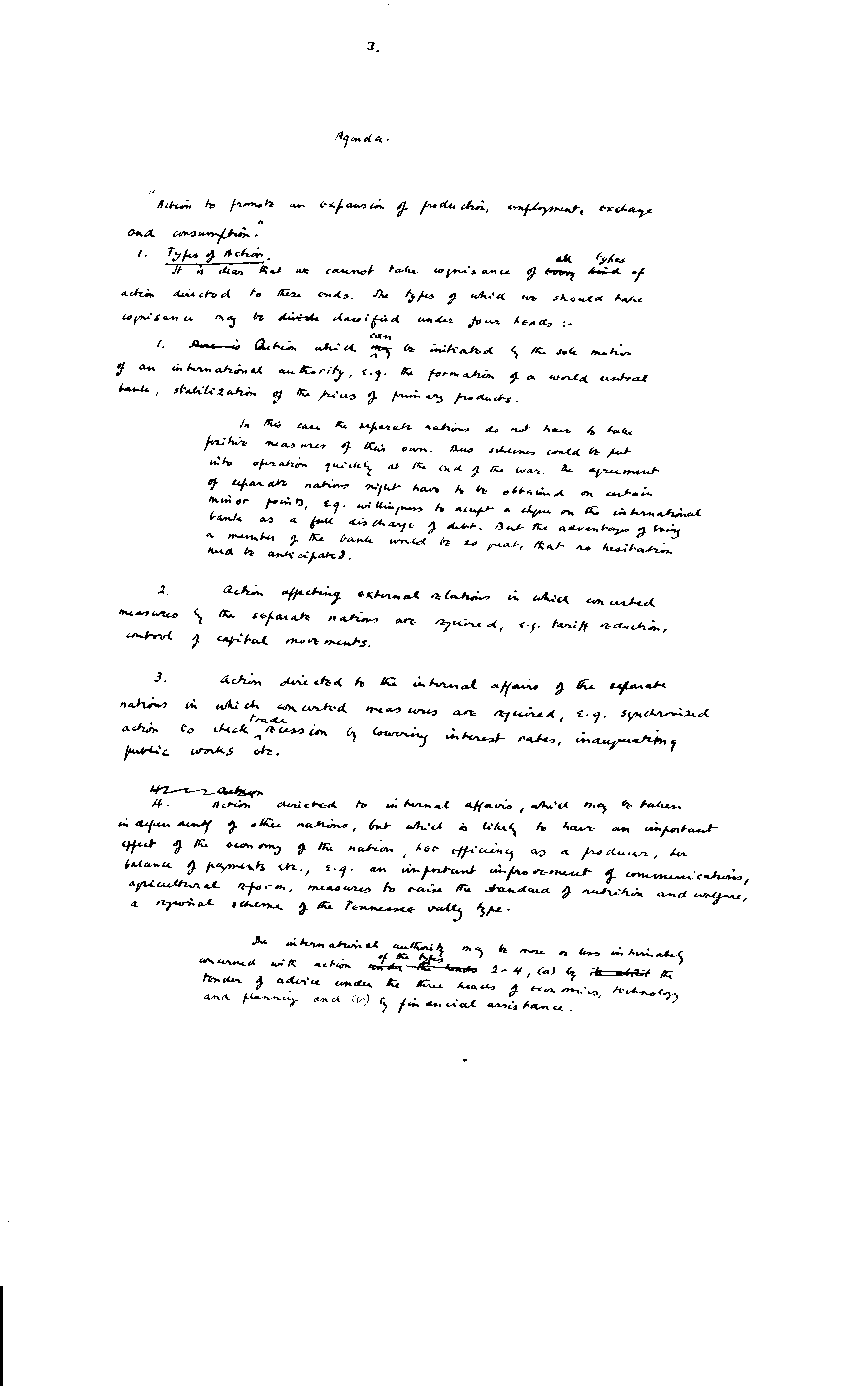 3.
Agenda.
"Action to promote an expansion of production, employment, exchange
and consumption."
1. Types of Action.
all types
It is clear that we cannot take cognisance of every kind of
action directed to these ends. The types of which we should take
cognisance may be divide classified under four heads :-
can
1. Action which may be initiated by the sole motion
of an international authority, e.g. the formation of a world central
bank, stabilization of the prices of primary products.
In this case the separate nations do not have to take
positive measures of their own. Thus schemes could be put
into operation quickly at the end of the war. The agreement
of separate nations might have to be obtained on certain
minor points, e.g. willingness to accept a cheque on the international
bank as a full discharge of debt. But the advantages of being
a member of the bank would be so great, that no hesitation
need be anticipated.
2. Action affecting external relations in which concerted
measures by the separate nations are required, e.g. tariff reduction,
control of capital movements.
3. Action directed to the internal affairs of the separate
nations in which concerted measures are required, e.g. synchronized
trade
action to check recession by lowering interest rates, inaugurating
public works etc.
Action
4. Action directed to internal affairs, which may be taken
independently of other nations, but which is likely to have an important
effect of the economy of the nation, her efficiency as a producer, her
balance of payments etc., e.g. an important improvement of communications,
agricultural reform, measures to raise the standard of nutrition and welfare,
a regional scheme of the Tennessee vally type.
The international authority may be more or less intimately
of the types
concerned with action under the heads 2-4, (a) by the
tender of advice under the three heads of economics, technology
and planning and (b) by financial assistance.